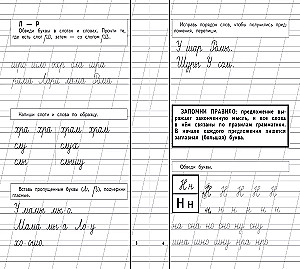 Л — Р
Обведи буквы в слогах и словах. Прочти те,
где есть слог РА, затем — со слогом ЛА.
рама Лара лама Рома
Напиши слоги и слова по образцу.
хра хра храм храм
слу слуга
сли сли
Вставь пропущенные буквы (Л, Р), подчеркни
гласные.
У мамы мы-а.
Мама мы-а Ло-у
хо-ошо.
Исправь порядок слов, чтобы получились пред-
ложения, перепиши.
У шар Ромы.
Шуры У сом.
ЗАПОМНИ ПРАВИЛО: предложение вы-
ражает законченную мысль, и все слова
в нём связаны по правилам грамматики.
В начале каждого предложения пишется
заглавная (большая) буква.
Обведи буквы.
Нн Н Н Н Н Н
Нн н н н н н н
на она но оно ну ону